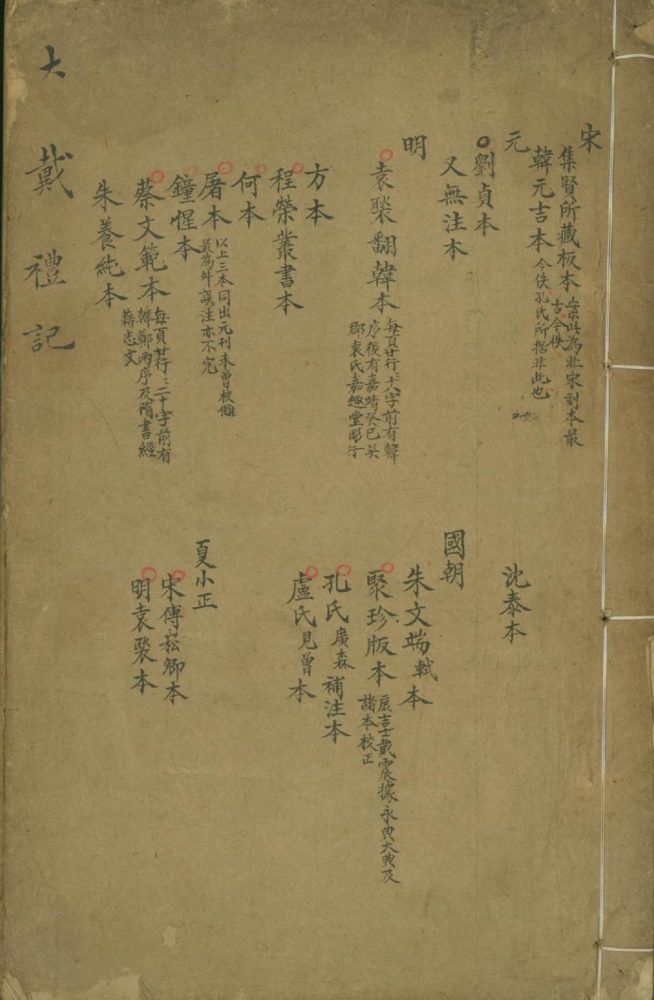 大戴禮記
宋
集賢所藏板本 崇此為北宋刻本最
古今佚
韓元吉本 今佚孔氏所據非此也
元
劉貞本
又無注本
明
袁褧翻韓本 每頁廿行、十八字前有韓
序後有嘉靖癸巳吳
郡袁氏嘉趣堂彫行
方本
程榮叢書本
何本
屠本 以上三本同出元刊未曾校讎
最為舛誤注亦不完
鐘惺本
蔡文範本 每頁廿行、二十字前有
韓鄭兩序及隋書經
籍志文
朱養純本
沈泰本
國朝
朱文端軾本
聚珍版本 庶吉士戴震據永典大典及
諸本校正
孔氏廣森補注本
盧氏見曾本
夏小正
宋傅崧卿本
明袁褧本